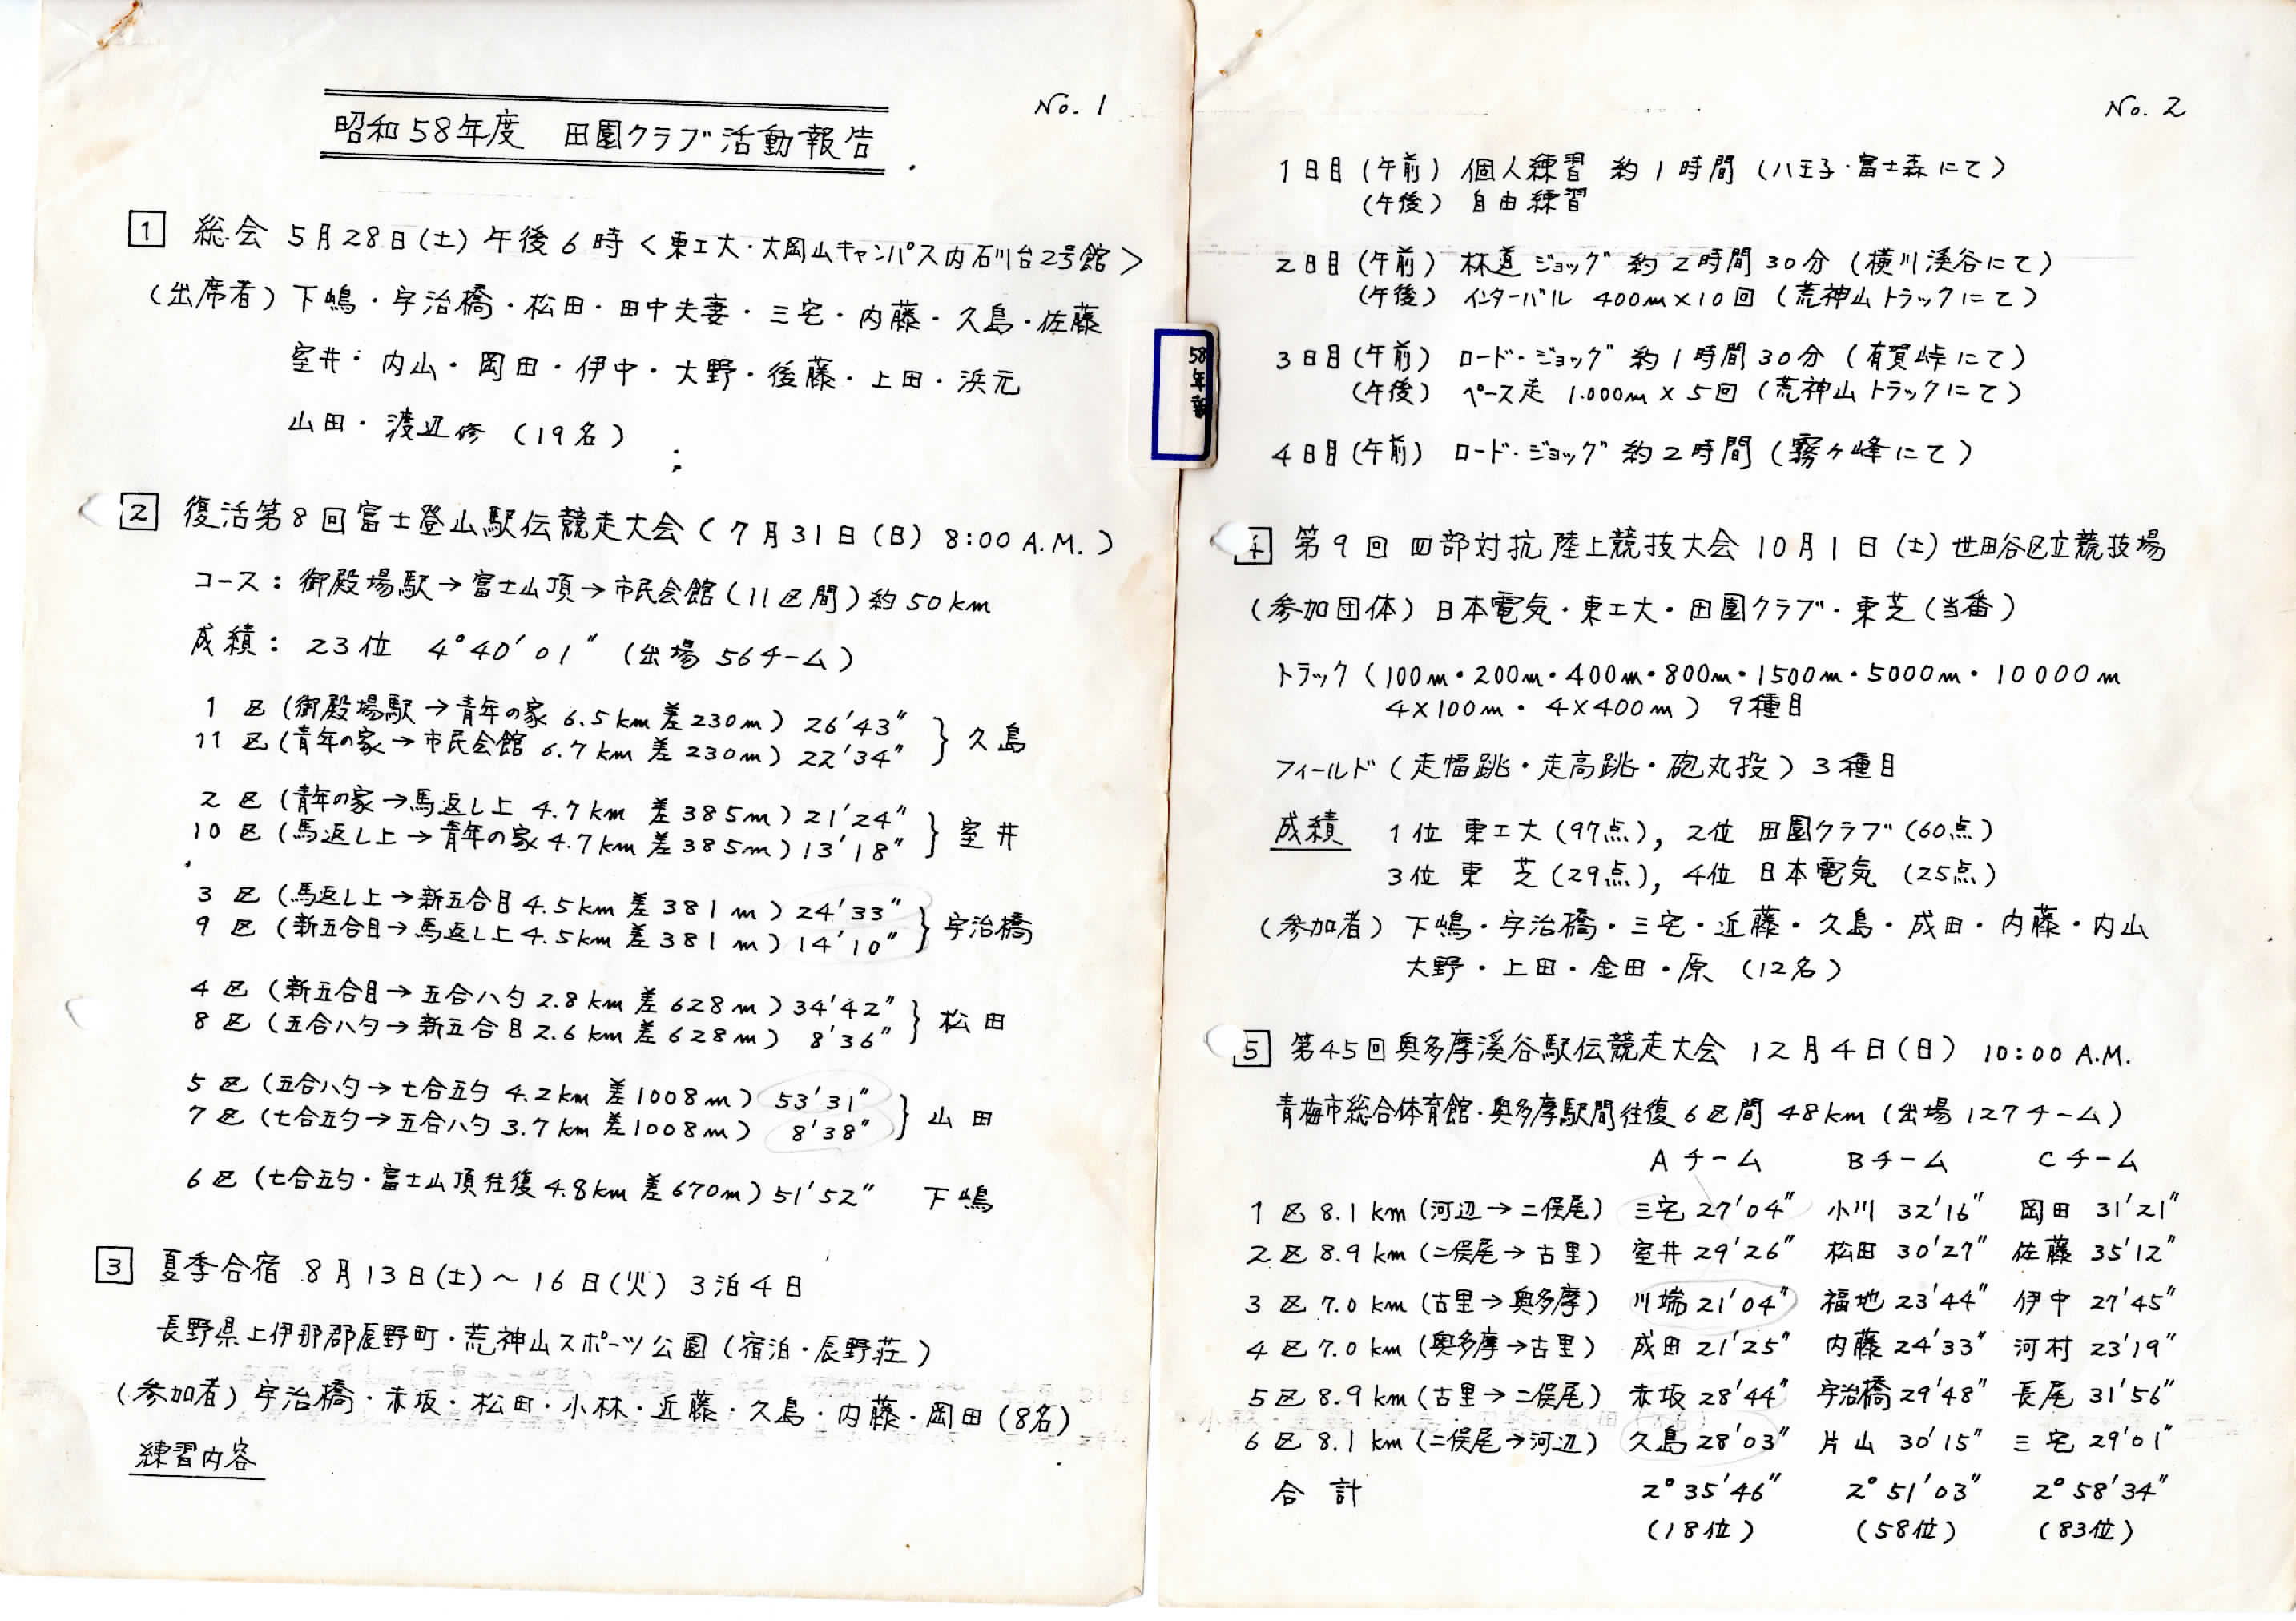 No. 1
昭和58年度 田園クラブ活動報告
1 総会 5月28日(土) 午後6時 <東工大・大岡山キャンパス内石川台2号館>
(出席者) 下嶋・宇治橋・松田・田中夫妻・三宅・内藤・久島・佐藤
室井・内山・岡田・伊中・大野・後藤・上田・浜元
山田・渡辺修 (19名)
2 復活第8回富士登山駅伝競走大会 (7月31日(日) 8:00 A.M.)
コース: 御殿場駅→富士山頂→市民会館 (11区間) 約50km
成績: 23位 4°40′01″ (出場56チーム)
1区 (御殿場駅→青年の家 6.5km 差230m) 26′43″
11区 (青年の家→市民会館 6.7km 差230m) 22′34″ } 久島
2区 (青年の家→馬返し上 4.7km 差385m) 21′24″
10区 (馬返し上→青年の家 4.7km 差385m) 13′18″ } 室井
3区 (馬返し上→新五合目 4.5km 差381m) 24′33″
9区 (新五合目→馬返し上 4.5km 差381m) 14′10″ } 宇治橋
4区 (新五合目→五合八勺 2.8km 差628m) 34′42″
8区 (五合八勺→新五合目 2.6km 差628m) 8′36″ } 松田
5区 (五合八勺→七合五勺 4.2km 差1008m) 53′31″
7区 (七合五勺→五合八勺 3.7km 差1008m) 8′38″ } 山田
6区 (七合五勺・富士山頂往復 4.8km 差670m) 51′52″ 下嶋
3 夏季合宿 8月13日(土)~16日(火) 3泊4日
長野県上伊那郡辰野町・荒神山スポーツ公園 (宿泊・辰野荘)
(参加者) 宇治橋・赤坂・松田・小林・近藤・久島・内藤・岡田 (8名)
練習内容
58年度
No. 2
1日目 (午前) 個人練習 約1時間 (八王子・富士森にて)
(午後) 自由練習
2日目 (午前) 林道ジョッグ 約2時間30分 (横川渓谷にて)
(午後) インターバル 400m×10回 (荒神山トラックにて)
3日目 (午前) ロード・ジョッグ 約1時間30分 (有賀峠にて)
(午後) ペース走 1.000m×5回 (荒神山トラックにて)
4日目 (午前) ロード・ジョッグ 約2時間 (霧ヶ峰にて)
4 第9回 四部対抗陸上競技大会 10月1日(土) 世田谷区立競技場
(参加団体) 日本電気・東工大・田園クラブ・東芝(当番)
トラック (100m・200m・400m・800m・1500m・5000m・10000m
4×100m・4×400m) 9種目
フィールド (走幅跳・走高跳・砲丸投) 3種目
成績 1位 東工大 (97点), 2位 田園クラブ (60点)
3位 東芝 (29点), 4位 日本電気 (25点)
(参加者) 下嶋・宇治橋・三宅・近藤・久島・成田・内藤・内山
大野・上田・金田・原 (12名)
5 第45回奥多摩渓谷駅伝競走大会 12月4日(日) 10:00 A.M.
青梅市総合体育館・奥多摩駅間往復6区間 48km (出場127チーム)
Aチーム Bチーム Cチーム
1区 8.1km (河辺→二俣尾) 三宅 27′04″ 小川 32′16″ 岡田 31′21″
2区 8.9km (二俣尾→古里) 室井 29′26″ 松田 30′27″ 佐藤 35′12″
3区 7.0km (古里→奥多摩) 川端 21′04″ 福地 23′44″ 伊中 27′45″
4区 7.0km (奥多摩→古里) 成田 21′25″ 内藤 24′33″ 河村 23′19″
5区 8.9km (古里→二俣尾) 赤坂 28′44″ 宇治橋 29′48″ 長尾 31′56″
6区 8.1km (二俣尾→河辺) 久島 28′03″ 片山 30′15″ 三宅 29′01″
合計 2°35′46″ 2°51′03″ 2°58′34″
(18位) (58位) (83位)